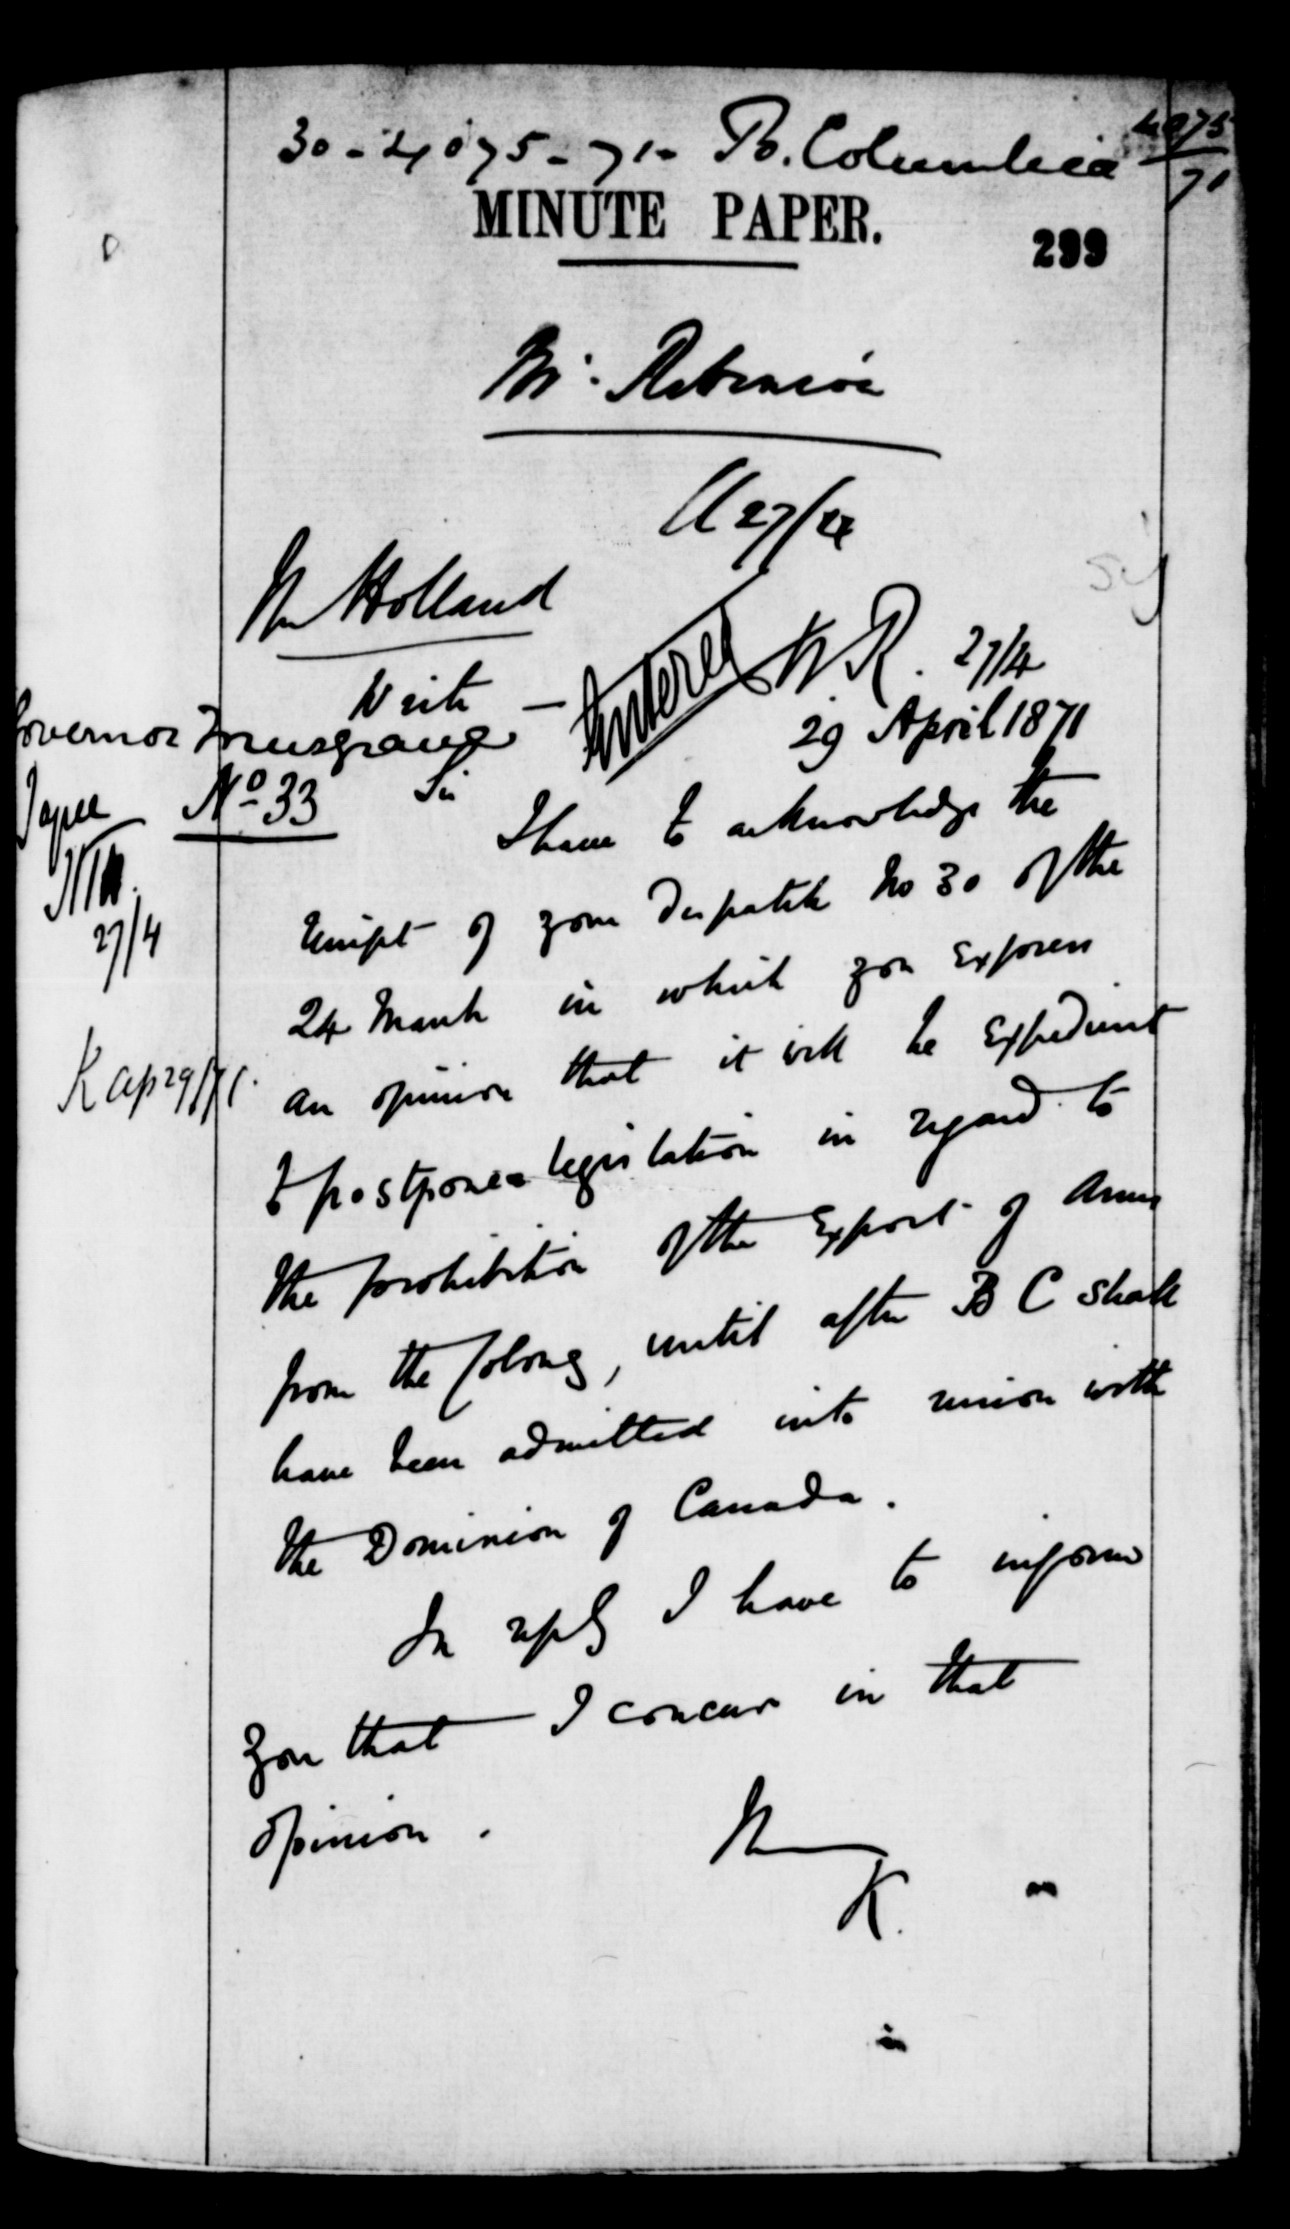 30-4075-71- B. Columbia
4075
71
MINUTE PAPER.
299
Mr. Robinson
27/4
Mr Holland
Write —
Entered
WR. 27/4
Governor Musgrave
29 April 1871
No. 33
Sir
I agree
27/4
K ap 29/71.
I have to acknowledge the
receipt of your Despatch No 30 of the
24 March in which you express
an opinion that it will be expedient
to postpone legislation in regard to
the prohibition of the Export of Arms
from the Colony, until after B C shall
have been admitted into union with
the Dominion of Canada.
In reply I have to inform
you that I concur in that
opinion.
K.